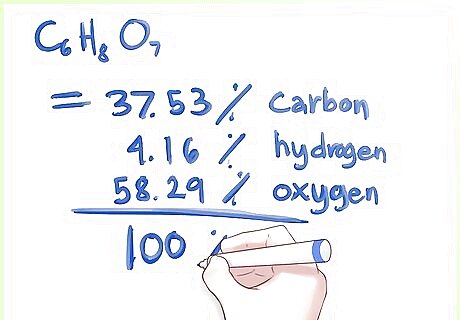 C₆H₈O₇
= 37.53 % carbon
4.16 % hydrogen
58.29 % oxygen
100 %